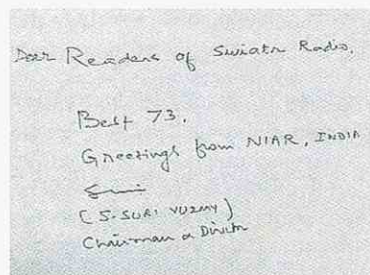 Dear Readers of Swiatr Radio.
Best 73.
Greetings from NIAR, INDIA
(S. SURI VU2MY)
Chairman & Director